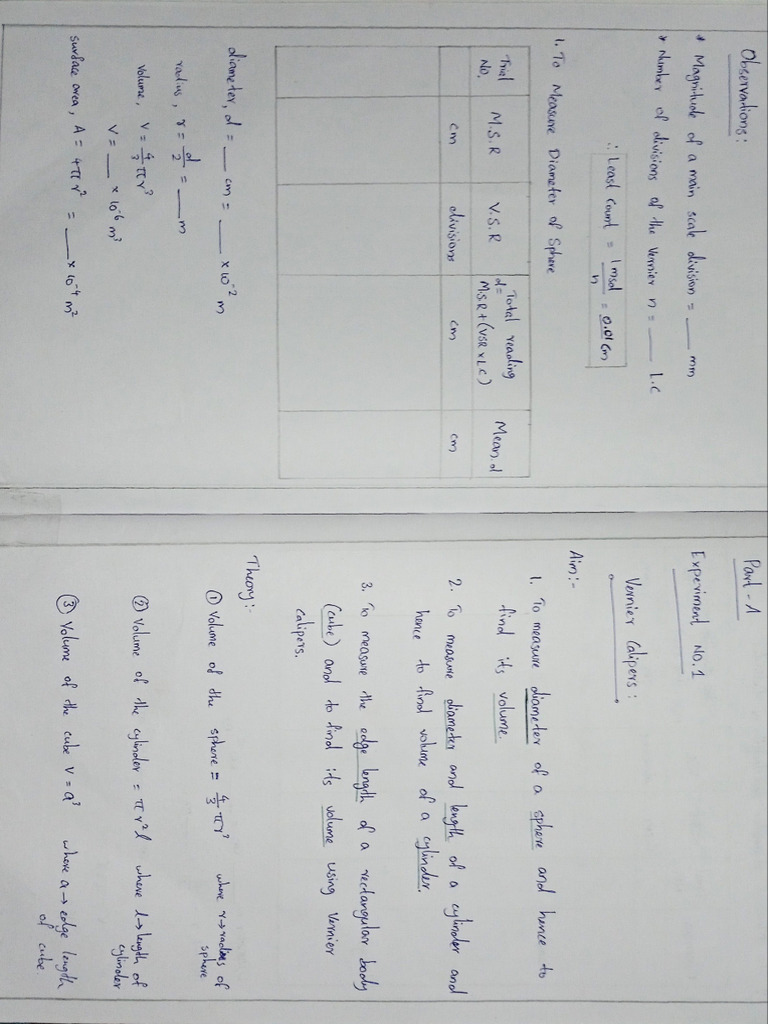 Observations:
* Magnitude of a main scale division = ___ mm
* Number of divisions of the Vernier n = ___ L.C
∴ Least Count = 1 msd / n = 0.01 cm
1. To Measure Diameter of Sphere
Trial No. | M.S.R cm | V.S.R divisions | Total reading d = M.S.R + (VSR × LC) cm | Mean d cm
diameter, d = ___ cm = ___ × 10⁻² m
radius, r = d/2 = ___ m
Volume, V = 4/3 πr³
V = ___ × 10⁻⁶ m³
surface area, A = 4πr² = ___ × 10⁻⁴ m²
Part - 1
Experiment No. 1
Vernier Calipers :
Aim:-
1. To measure diameter of a sphere and hence to
find its volume.
2. To measure diameter and length of a cylinder and
hence to find volume of a cylinder.
3. To measure the edge length of a rectangular body
(cube) and to find its volume using Vernier
calipers.
Theory:-
① Volume of the sphere = 4/3 πr³ where r → radius of
sphere
② Volume of the cylinder = πr²l where l → length of
cylinder
③ Volume of the cube V = a³ where a → edge length
of cube.